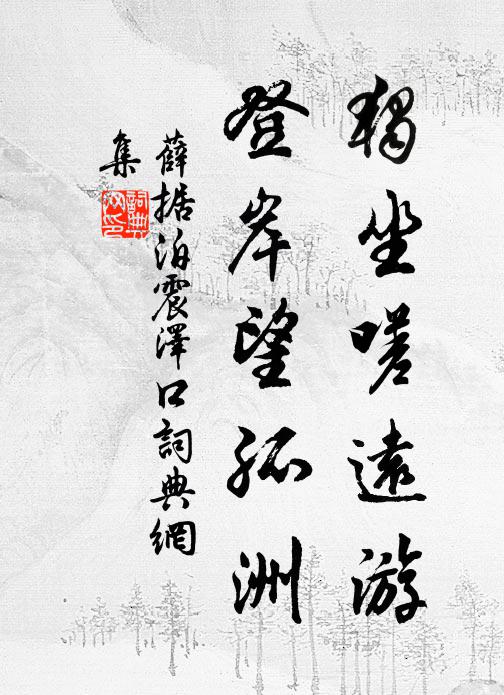 獨坐嗟遠游
登岸望孤洲
薛据泊震澤口詞典網
集
詞典
网印